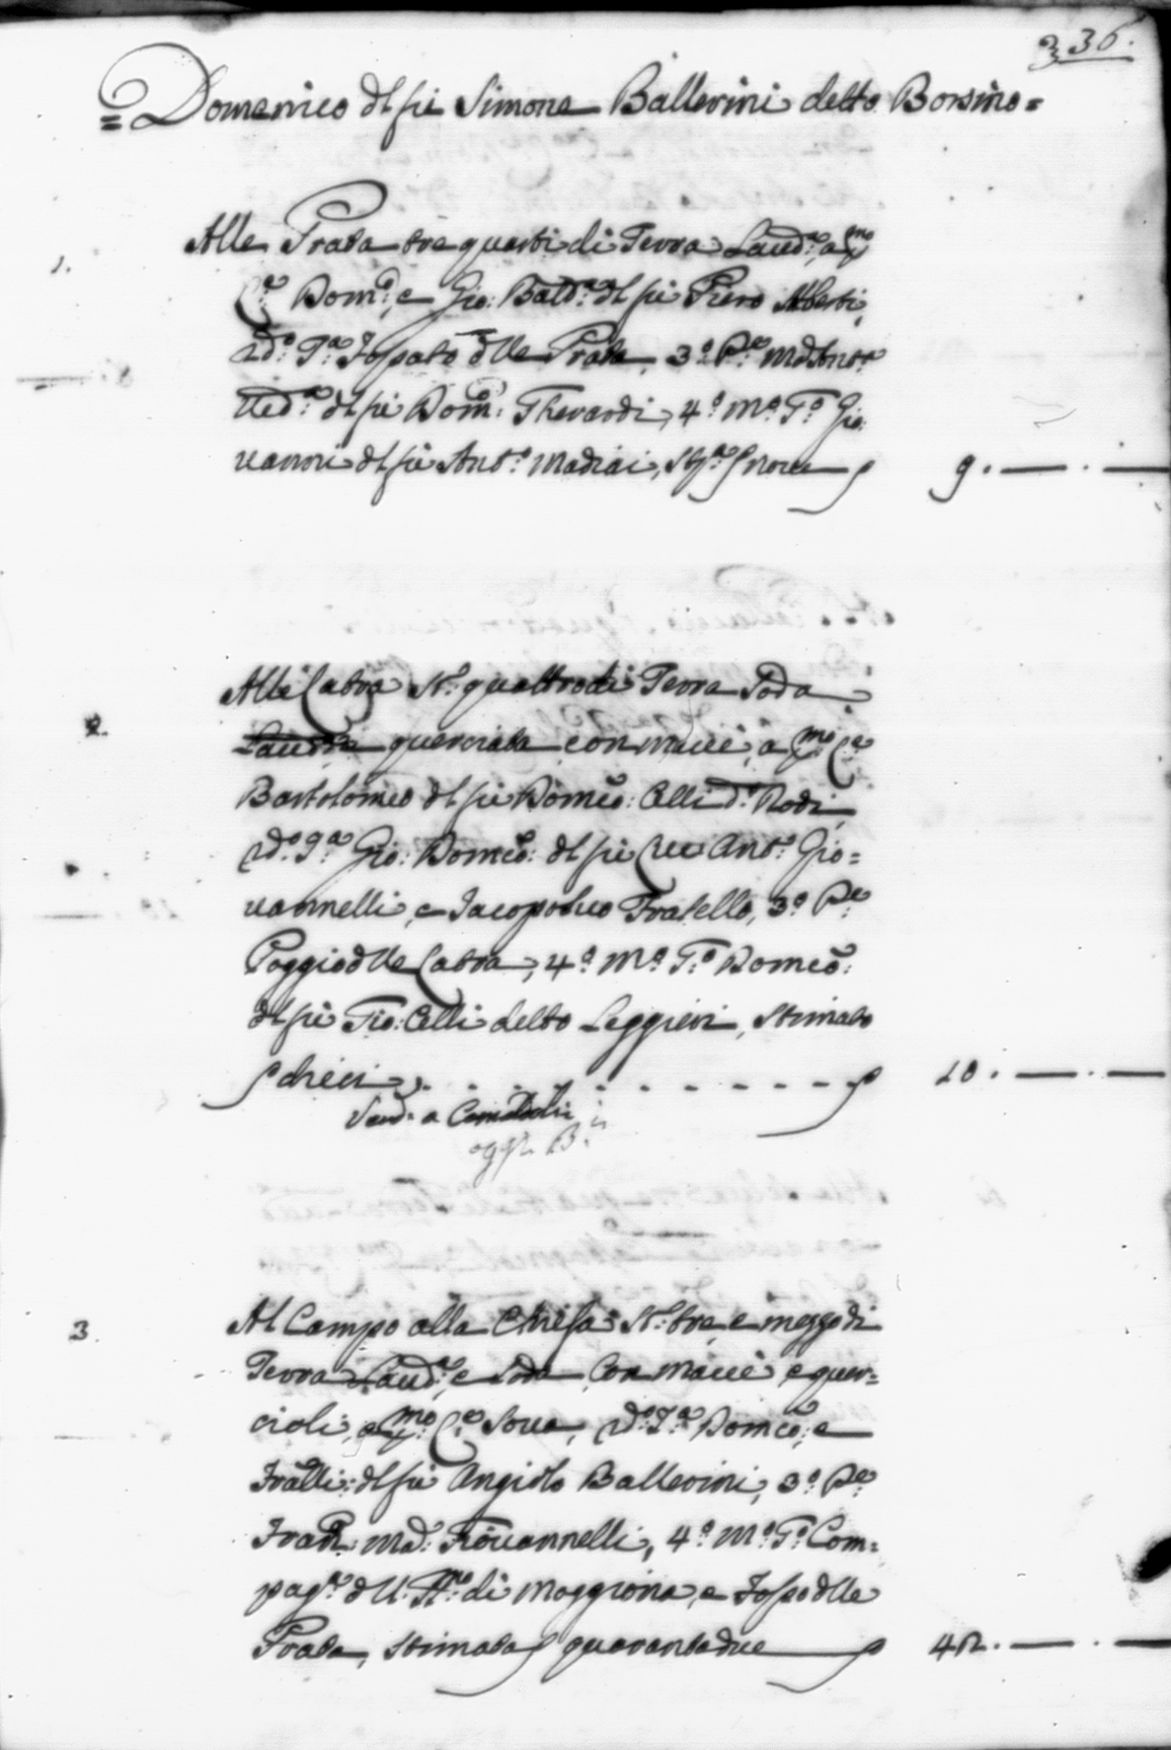 336.
= Domenico dl fù Simone Ballerini detto Borsino =
1. Alle Prata tre quarti di Terra Laud:ª, a pmo
Cº Domº, e Gio: Batdª dl fù Piero Alberti,
2dº Tª Fossato dlle Prata, 3º Pe Mª Antª
Ved:ª dl fù Domº: Gherardi, 4º Mº Tº Gio:
vanni dl fù Antº Madiai, nove 9. — . —
2. Alle Catra St: quattro di Terra Soda
querciata con macie, a pmo Ce
Bartolomeo dl fù Domco: Celli dº Rodi,
2dº Tª Gio: Domco: dl fù Antº: Gio=
vannelli, e Iacopo suo Fratello, 3º Pe
Poggio dlle Catra, 4º Mº Tº Domco:
dl fù Gio: Celli detto Leggieri, Stimato
dieci . . . . . . . . 10. — . —
Vend: a Camaldoli
3. Al Campo alla Chiesa St: tre, e mezzo di
Terra Laud:ª, e Soda Con macie e quer=
cioli, a pmo Ce Sova, 2dº Tª Domco:, e
Fratlli: dl fù Angiolo Ballerini, 3º Pe
Mª: Giovannelli, 4º Mº Tº Com=
pagª dll: di Moggiona, e Fosso dlle
Prata, Stimata quarantadue 42. — . —